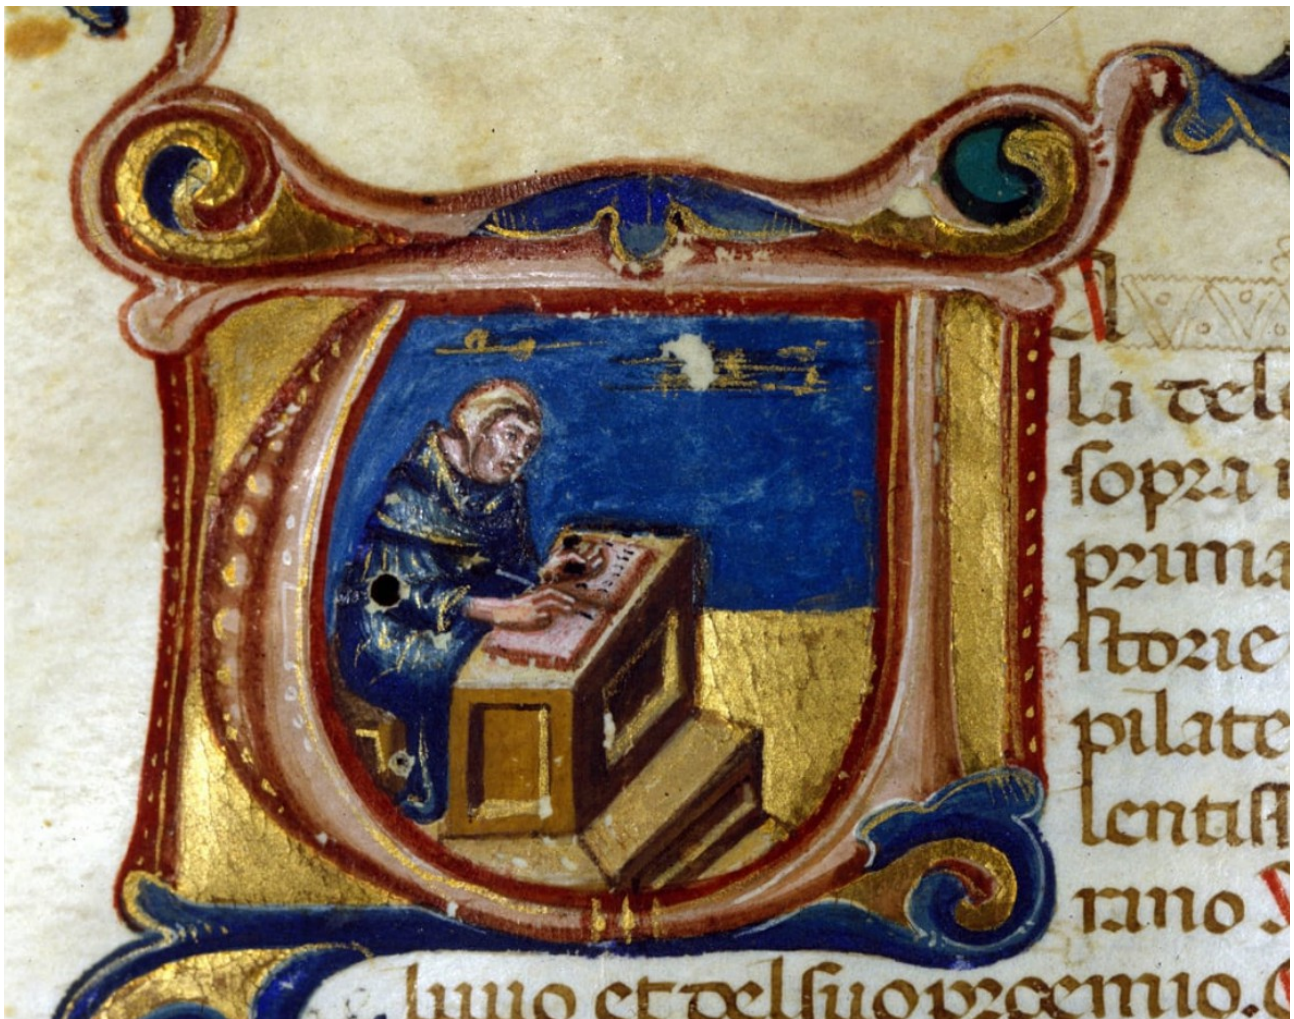 A
la dele
sopra i
prima
storie
pilate
lentiss
rano
liuio et del suo proemio.